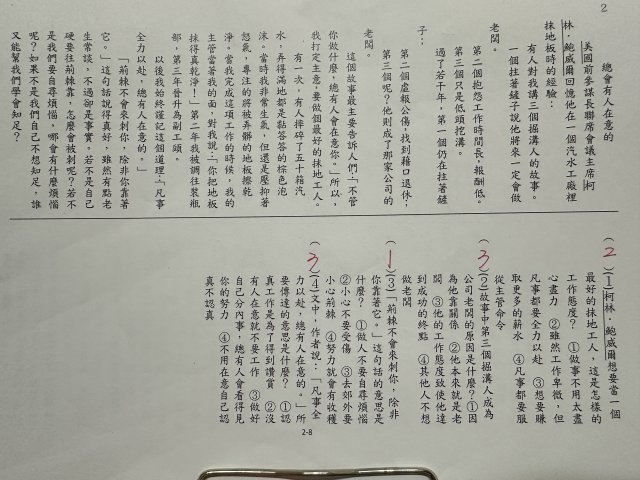 2
總會有人在意的
美國前參謀長聯席會議主席柯
林．鮑威爾回憶他在一個汽水工廠裡
抹地板時的經驗：
有人對我講三個掘溝人的故事。
一個拄著鏟子說他將來一定會做
老闆。
第二個抱怨工作時間長，報酬低。
第三個只是低頭挖溝。
過了若干年，第一個仍在拄著鏟
子；
第二個虛報公傷，找到藉口退休；
第三個呢？他則成了那家公司的
老闆。
這個故事最主要告訴人們：「不管
你做什麼，總有人會在意你。」所以，
我打定主意，要做個最好的抹地工人。
有一次，有人摔碎了五十箱汽
水，弄得滿地都是黏答答的棕色泡
沫。當時我非常生氣，但還是壓抑著
怒氣，專注的將被弄髒的地板擦乾
淨。當我完成這項工作的時候，我的
主管當著我的面，對我說：「你把地板
抹得真乾淨！」第二年我被調往裝瓶
部，第三年晉升為副工頭。
以後我始終謹記這個道理：「凡事
全力以赴，總有人在意的。」
「荊棘不會來刺你，除非你靠著
它。」這句話說得真好，雖然有點老
生常談，不過卻是事實。若不是自己
硬要往荊棘靠，怎麼會被刺呢？若不
是我們要自尋煩惱，哪會有什麼煩惱
呢？如果不是我們自己不想知足，誰
又能幫我們學會知足？
(2)(1)柯林．鮑威爾想要當一個
最好的抹地工人，這是怎樣的
工作態度？ ①做事不用太盡
心盡力 ②雖然工作卑微，但
凡事都要全力以赴 ③想要賺
取更多的薪水 ④凡事都要服
從主管命令
(3)(2)故事中第三個掘溝人成為
公司老闆的原因是什麼？①因
為他靠關係 ②他本來就是老
闆 ③他的工作態度致使他達
到成功的終點 ④其他人不想
做老闆
(1)(3)「荊棘不會來刺你，除非
你靠著它。」這句話的意思是
什麼？ ①做人不要自尋煩惱
②小心不要受傷 ③去郊外要
小心荊棘 ④努力就會有收穫
(3)(4)文中，作者說：「凡事全
力以赴，總有人在意的。」所
要傳達的意思是什麼？ ①認
真工作是為了得到讚賞 ②沒
有人在意就不要工作 ③做好
自己分內事，總有人會看得見
你的努力 ④不用在意自己認
真不認真
2-8